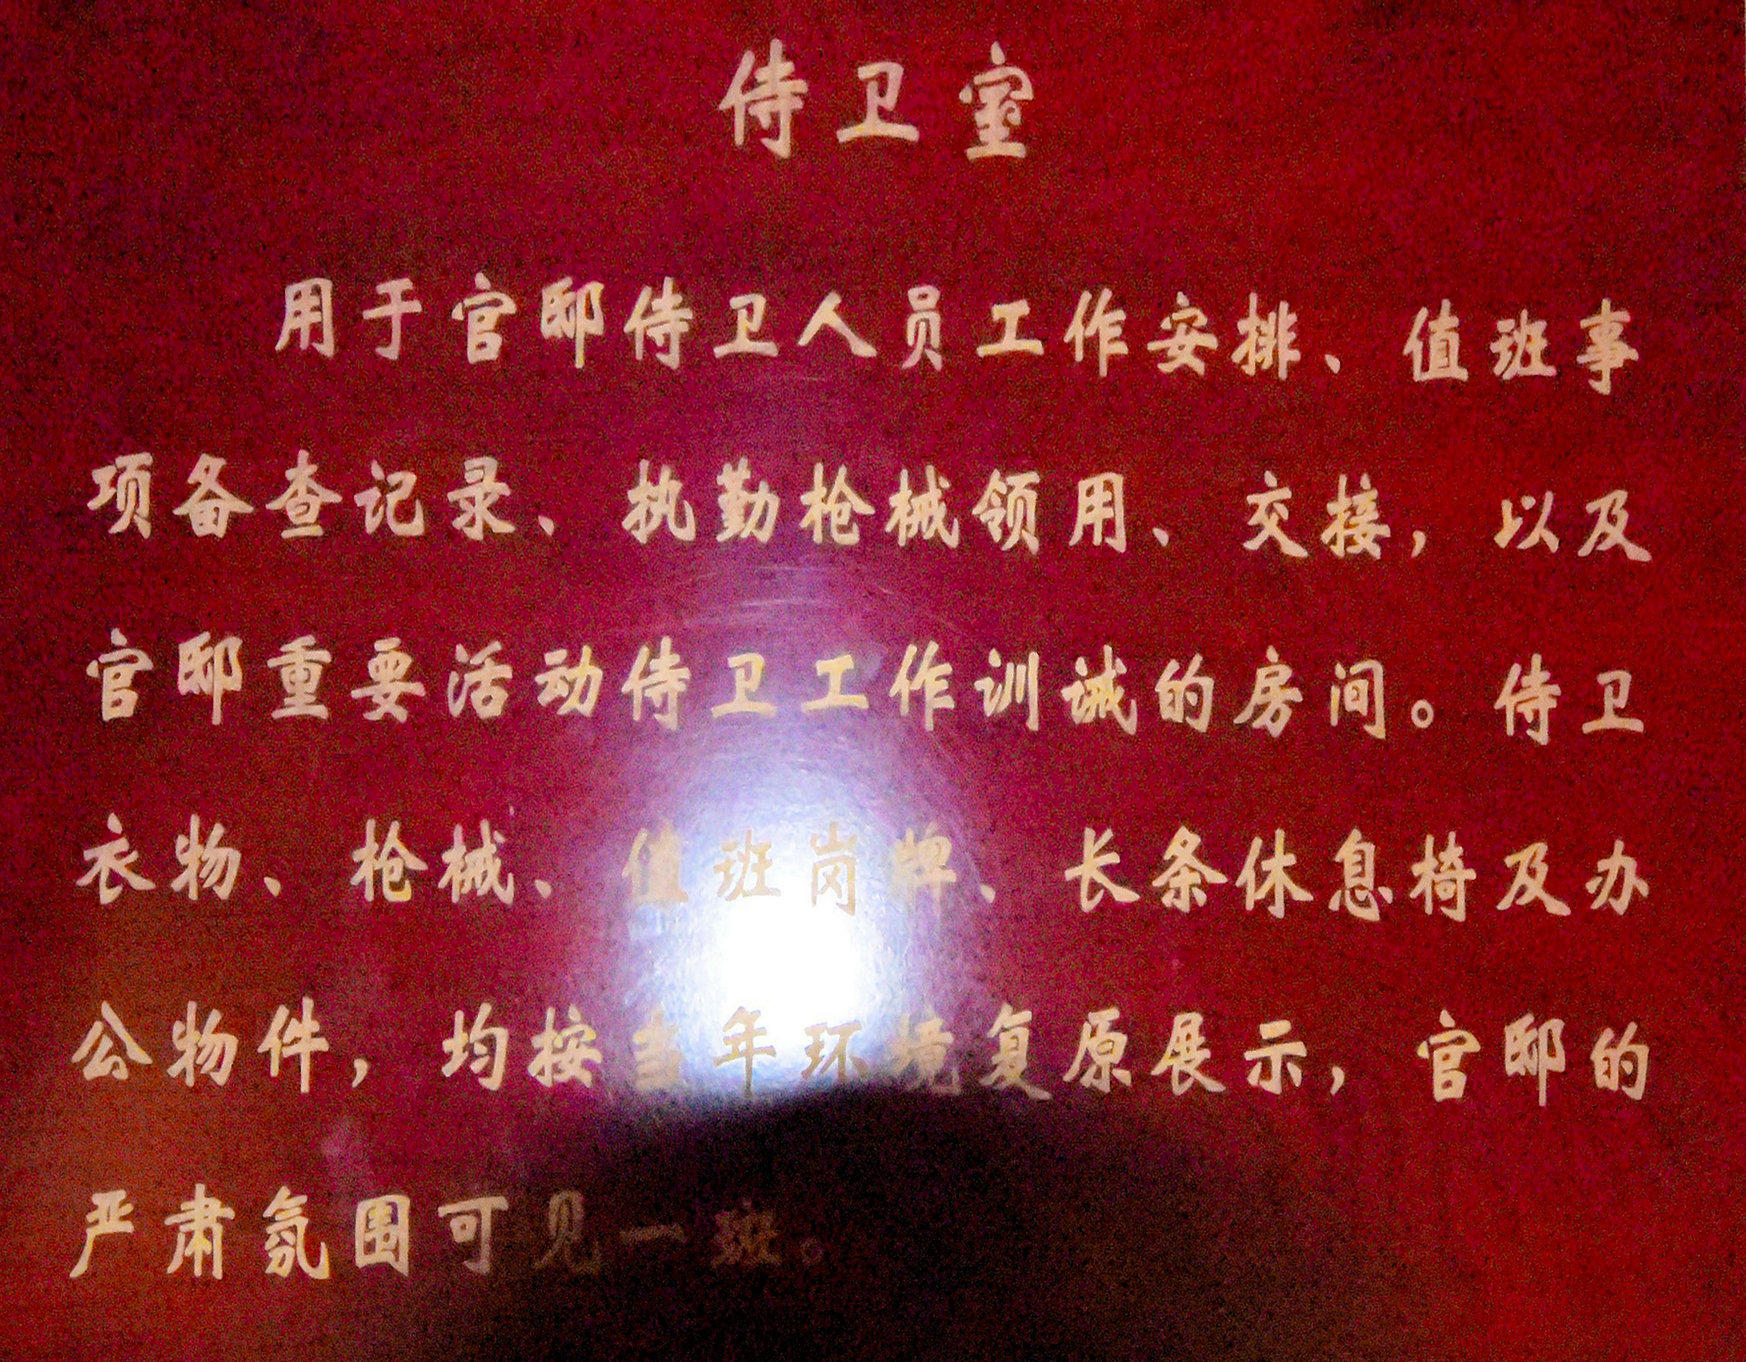 侍卫室
用于官邸侍卫人员工作安排、值班事
项备查记录、执勤枪械领用、交接，以及
官邸重要活动侍卫工作训诫的房间。侍卫
衣物、枪械、值班岗牌、长条休息椅及办
公物件，均按当年环境复原展示，官邸的
严肃氛围可见一班。